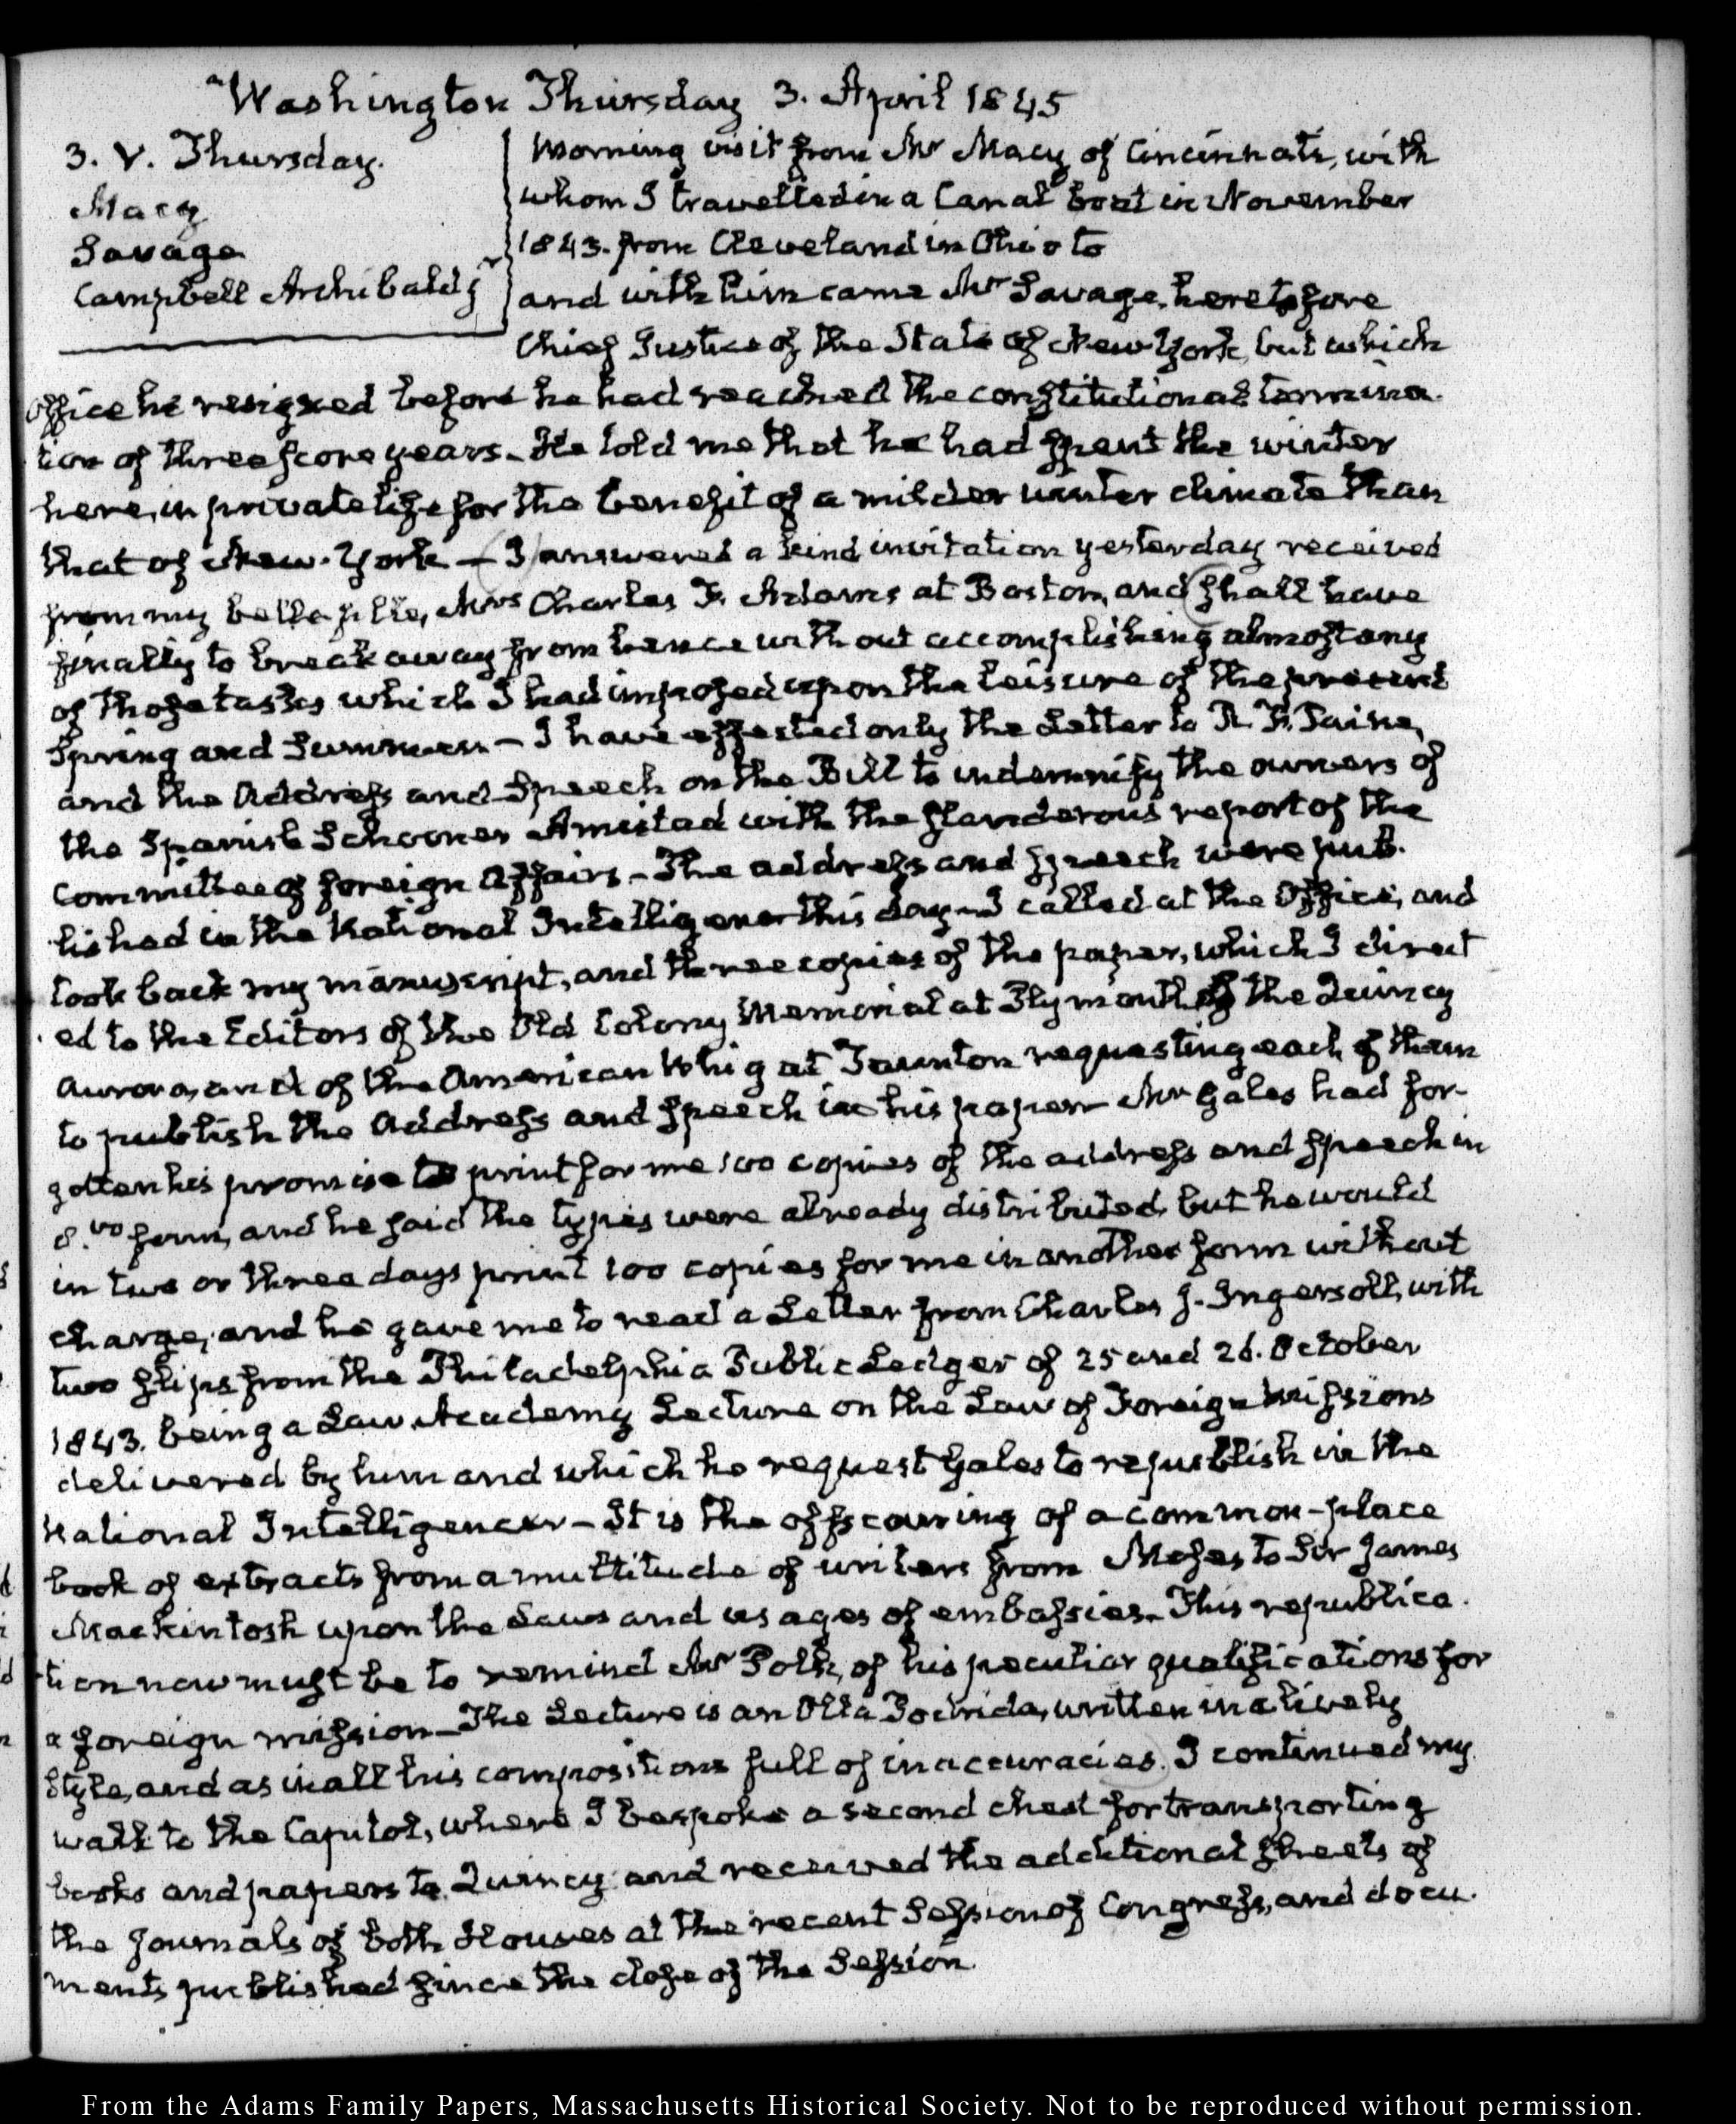 Washington Thursday 3. April 1845
3. V. Thursday.
Macy
Savage
Campbell Archibald
Morning visit from Mr Macy of Cincinnati, with
whom I travelled in a Canal boat in November
1843. from Cleveland in Ohio to
and with him came Mr Savage, heretofore
Chief Justice of the State of New York, but which
office he resigned before he had reached the constitutional termina-
tion of three score years. He told me that he had spent the winter
here, in private life for the benefit of a milder winter climate than
that of New-York — I answered a kind invitation yesterday received
from my belle fille, Mrs Charles F. Adams at Boston, and shall have
finally to break away from hence without accomplishing almost any
of those tasks which I had imposed upon the leisure of the present
Spring and Summer — I have effected only the Letter to R. F. Paine,
and the Address and Speech on the Bill to indemnify the owners of
the Spanish Schooner Amistad with the slanderous report of the
Committee of foreign Affairs — The address and speech were pub-
lished in the National Intelligencer this day — I called at the Office, and
took back my manuscript, and three copies of the paper, which I direct
ed to the Editors of the Old Colony Memorial at Plymouth of the Quincy
Aurora, and of the American Whig at Taunton requesting each of them
to publish the Address and Speech in his paper — Mr Gales had for-
gotten his promise to print for me 100 copies of the address and speech in
8.vo form, and he said the types were already distributed, but he would
in two or three days print 100 copies for me in another form without
charge, and he gave me to read a Letter from Charles J. Ingersoll, with
two slips from the Philadelphia Public Ledger of 25 and 26. October
1843. being a Law Academy Lecture on the Law of Foreign Missions
delivered by him and which he request Gales to republish in the
National Intelligencer — It is the offscouring of a common-place
book of extracts from a multitude of writers from Moses to Sir James
Mackintosh upon the Laws and usages of embassies. This republica-
tion now must be to remind Mr Polk, of his peculiar qualifications for
a foreign mission — The Lecture is an Olla Podrida, written in a lively
style, and as in all his compositions full of inaccuracies. I continued my
walk to the Capitol, where I bespoke a second chest for transporting
books and papers to Quincy and received the additional sheets of
the Journals of both Houses at the recent Session of Congress, and docu-
ments published since the close of the Session.
From the Adams Family Papers, Massachusetts Historical Society. Not to be reproduced without permission.